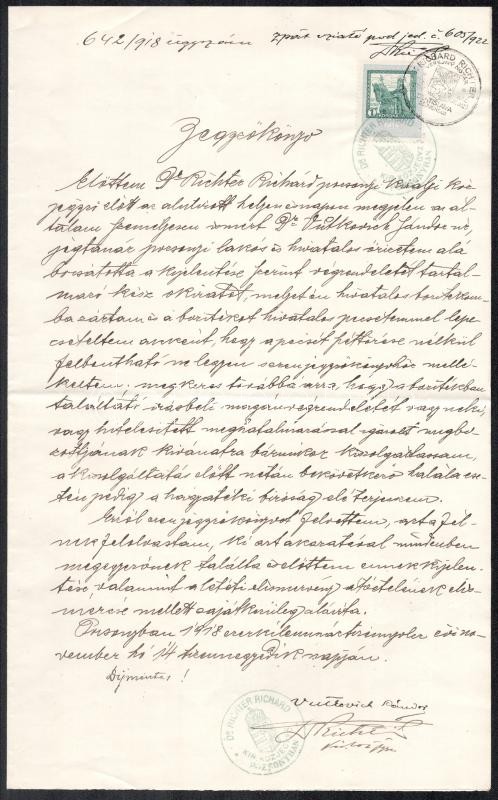 642/918 ügyszám
Zpráv vziaté pod jed. č. 605/922
D RICHARD RICHTER
BRATISLAVA
6 KORONA
Dr RICHTER RICHARD
Jegyzőkönyv
Előttem Dr Richter Richárd pozsonyi királyi köz
jegyző előtt az alulirott helyen és napon megjelen az ál
talam személyesen ismert Dr Vutkovich Sándor ur,
jogtanár pozsonyi lakos és hivatalos őrizetem alá
bocsátotta a kijelentése szerint végrendeletét tartal
mazó kész okiratot, melyet én hivatalos boritékom
ba zártam és a boritékot hivatalos pecsétemmel lepe
cseteltem annként, hogy a pecsét föltörése nélkül
felbontható ne legyen s ezen jegyzőkönyvhöz mellé
keltem; megkeres továbbá arra, hogy a boritékban
található irásbeli magánvégrendeletét vagy neki,
vagy hitelesitett meghatalmazással igazolt megbi
zottjának kivánatra bármikor kiszolgáltassam,
a kiszolgáltatás előtt netán bekövetkező halála ese
tén pedig a hagyatéki biróság elé terjesszem.
Erről ezen jegyzőkönyvet felvettem, azt a fel-
nek felolvastam, ki azt akaratával mindenben
megegyezőnek találta és előttem ennek kijelen-
tése, valamint a letéti elismervény átvételének elis-
merése mellett sajátkezüleg aláirta.
Pozsonyban 1918 ezerkilencszáztizennyolc évi no-
vember hó 14 tizennegyedik napján.
Díjmentes!
Vutkovich Sándor
Dr RICHTER RICHARD
KIR. KÖZJEGYZŐ
POZSONYBAN